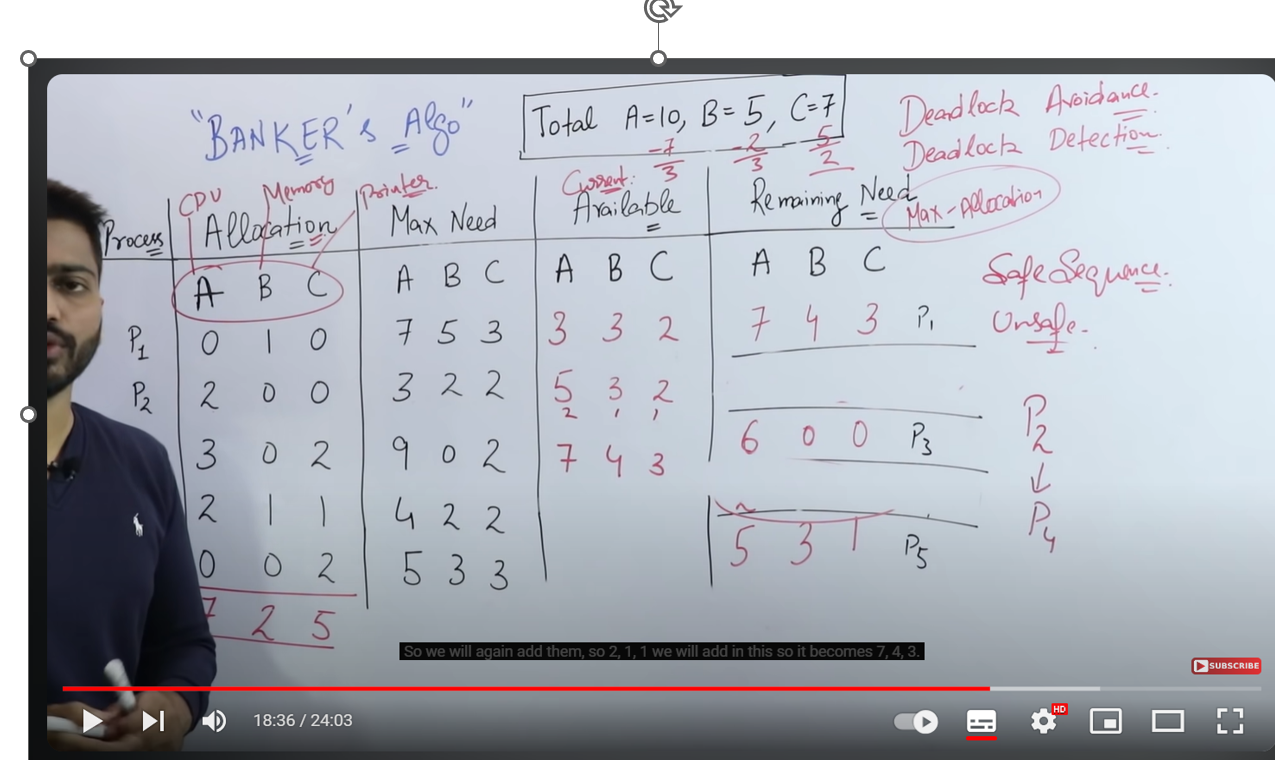 "BANKER's Algo"
Total A=10, B=5, C=7
-7 -2 -5
3 3 2
Deadlock Avoidance.
Deadlock Detection.
CPU Memory Printer.
Process Allocation Max Need Current: Available Remaining Need
Max-Allocation
A B C A B C A B C A B C
P1 0 1 0 7 5 3 3 3 2 7 4 3 P1
P2 2 0 0 3 2 2 5 3 2
2 1 1
3 0 2 9 0 2 7 4 3 6 0 0 P3
2 1 1 4 2 2
0 0 2 5 3 3 5 3 1 P5
7 2 5
Safe Sequence.
Unsafe.
P2
↓
P4
So we will again add them, so 2, 1, 1 we will add in this so it becomes 7, 4, 3.
SUBSCRIBE
18:36 / 24:03
HD